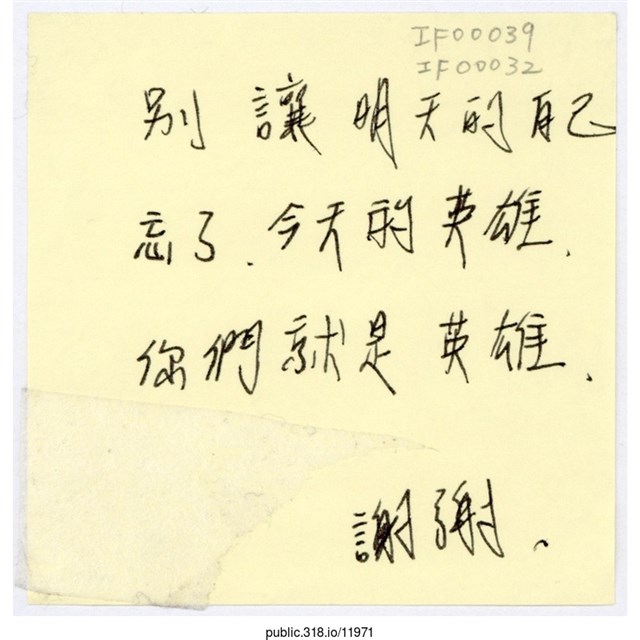 IF00039
IF00032
別讓明天的自己
忘了.今天的英雄.
你們就是英雄.
謝謝.
public.318.io/11971